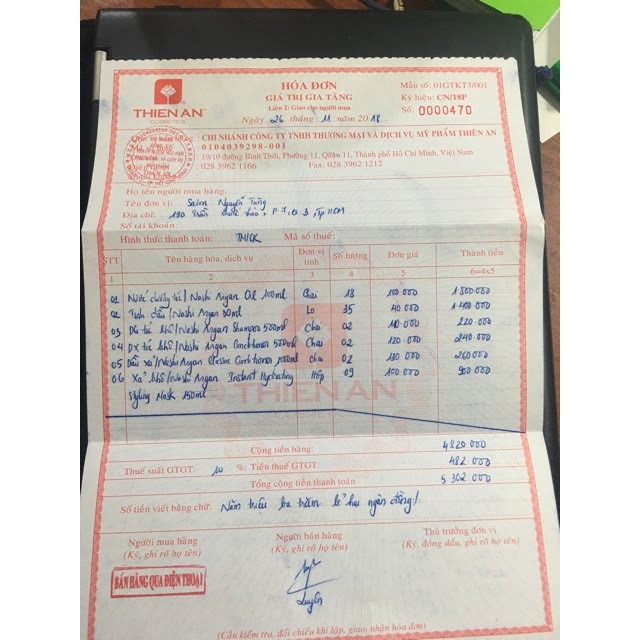 THIEN AN
COSMETICS
HÓA ĐƠN
GIÁ TRỊ GIA TĂNG
Liên 2: Giao cho người mua
Ngày 26 tháng 11 năm 2018
Mẫu số: 01GTKT3/001
Ký hiệu: CN/18P
Số: 0000470
CHI NHÁNH CÔNG TY TNHH THƯƠNG MẠI VÀ DỊCH VỤ MỸ PHẨM THIÊN AN
0104039298-001
19/10 đường Bình Thới, Phường 11, Quận 11, Thành phố Hồ Chí Minh, Việt Nam
028 3962 1166 Fax: 028 3962 1212
Họ tên người mua hàng:
Tên đơn vị: Salon Nguyễn Tùng
Địa chỉ: 190 Trần Quốc Thảo, P 7, Q 3, Tp HCM
Số tài khoản:
Hình thức thanh toán: TM/CK Mã số thuế:
STT Tên hàng hóa, dịch vụ Đơn vị tính Số lượng Đơn giá Thành tiền
1 2 3 4 5 6=4x5
01 Nước dưỡng tóc/Nashi Argan Oil 100ml Chai 18 100 000 1 800 000
02 Tinh dầu/Nashi Argan 30ml Lo 35 40 000 1 400 000
03 DG tóc khô/Nashi Argan Shampoo 500ml Chai 02 110 000 220 000
04 DX tóc khô/Nashi Argan Conditioner 500ml Chai 02 120 000 240 000
05 Dầu xả/Nashi Argan Classic Conditioner 1000ml Chai 02 130 000 260 000
06 Xả khô/Nashi Argan Instant Hydrating Hộp 09 100 000 900 000
Styling Mask 150ml
THIEN AN
Cộng tiền hàng: 4 820 000
Thuế suất GTGT: 10 %: Tiền thuế GTGT: 482 000
Tổng cộng tiền thanh toán 5 302 000
Số tiền viết bằng chữ: Năm triệu ba trăm lẻ hai ngàn đồng/.
Người mua hàng Người bán hàng Thủ trưởng đơn vị
(Ký, ghi rõ họ tên) (Ký, ghi rõ họ tên) (Ký, đóng dấu, ghi rõ họ tên)
BÁN HÀNG QUA ĐIỆN THOẠI
(Cần kiểm tra, đối chiếu khi lập, giao, nhận hóa đơn)